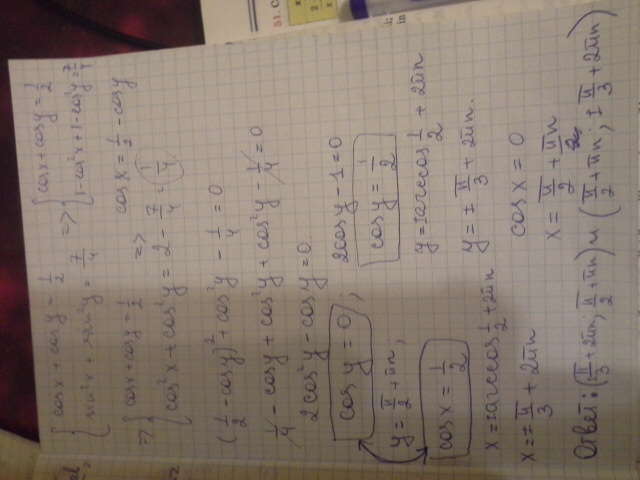 { cosx + cosy = 1/2 { sin²x + sin²y = 7/4 => { cosx + cosy = 1/2 { 1-cos²x+1-cos²y = 7/4
=> { cosx + cosy = 1/2 { cos²x + cos²y = 2 - 7/4 = 1/4 => cosx = 1/2 - cosy
(1/2 - cosy)² + cos²y - 1/4 = 0
1/4 - cosy + cos²y + cos²y - 1/4 = 0
2cos²y - cosy = 0
cosy = 0; 2cosy - 1 = 0
y = π/2 + πn, cosy = 1/2
cosx = 1/2 y = ±arccos 1/2 + 2πn
x = ±arccos 1/2 + 2πn y = ± π/3 + 2πn.
x = ± π/3 + 2πn cosx = 0
x = π/2 + πn
Ответ: (± π/3 + 2πn; π/2 + πn) и (π/2 + πn; ± π/3 + 2πn)
51. С